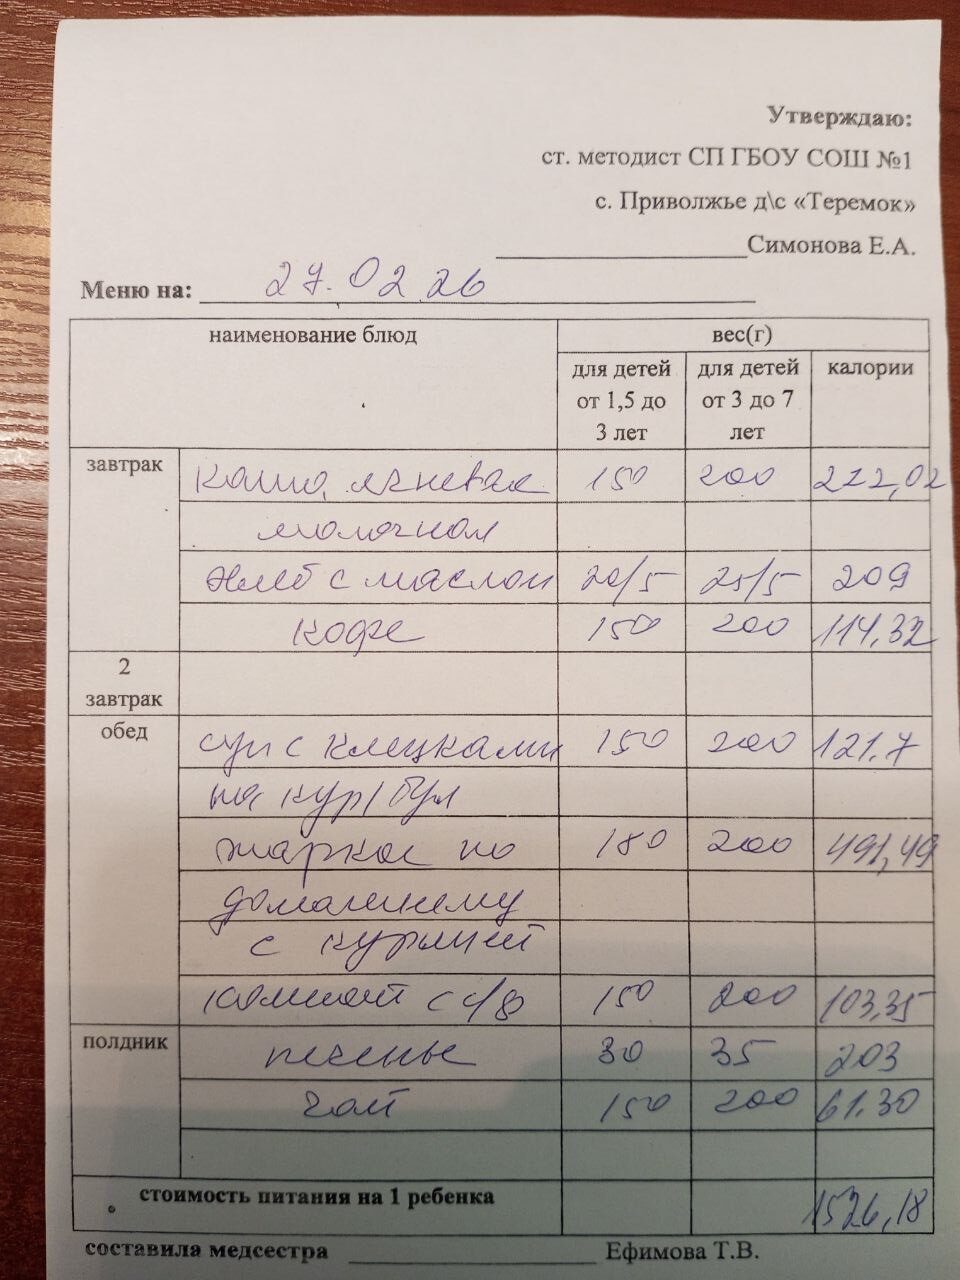 Утверждаю:
ст. методист СП ГБОУ СОШ №1
с. Приволжье д\с «Теремок»
Симонова Е.А.
Меню на: 27.02.26
наименование блюд вес(г)
для детей от 1,5 до 3 лет для детей от 3 до 7 лет калории
завтрак каша ячневая 150 200 222,02
молочная
хлеб с маслом 20/5 25/5 209
кофе 150 200 114,32
2 завтрак
обед суп с клецками 150 200 121.7
на кур/бул
жаркое по 180 200 491,49
домашнему
с курицей
компот с с/ф 150 200 103,35
полдник печенье 30 35 203
чай 150 200 61.30
стоимость питания на 1 ребенка 1526,18
составила медсестра Ефимова Т.В.